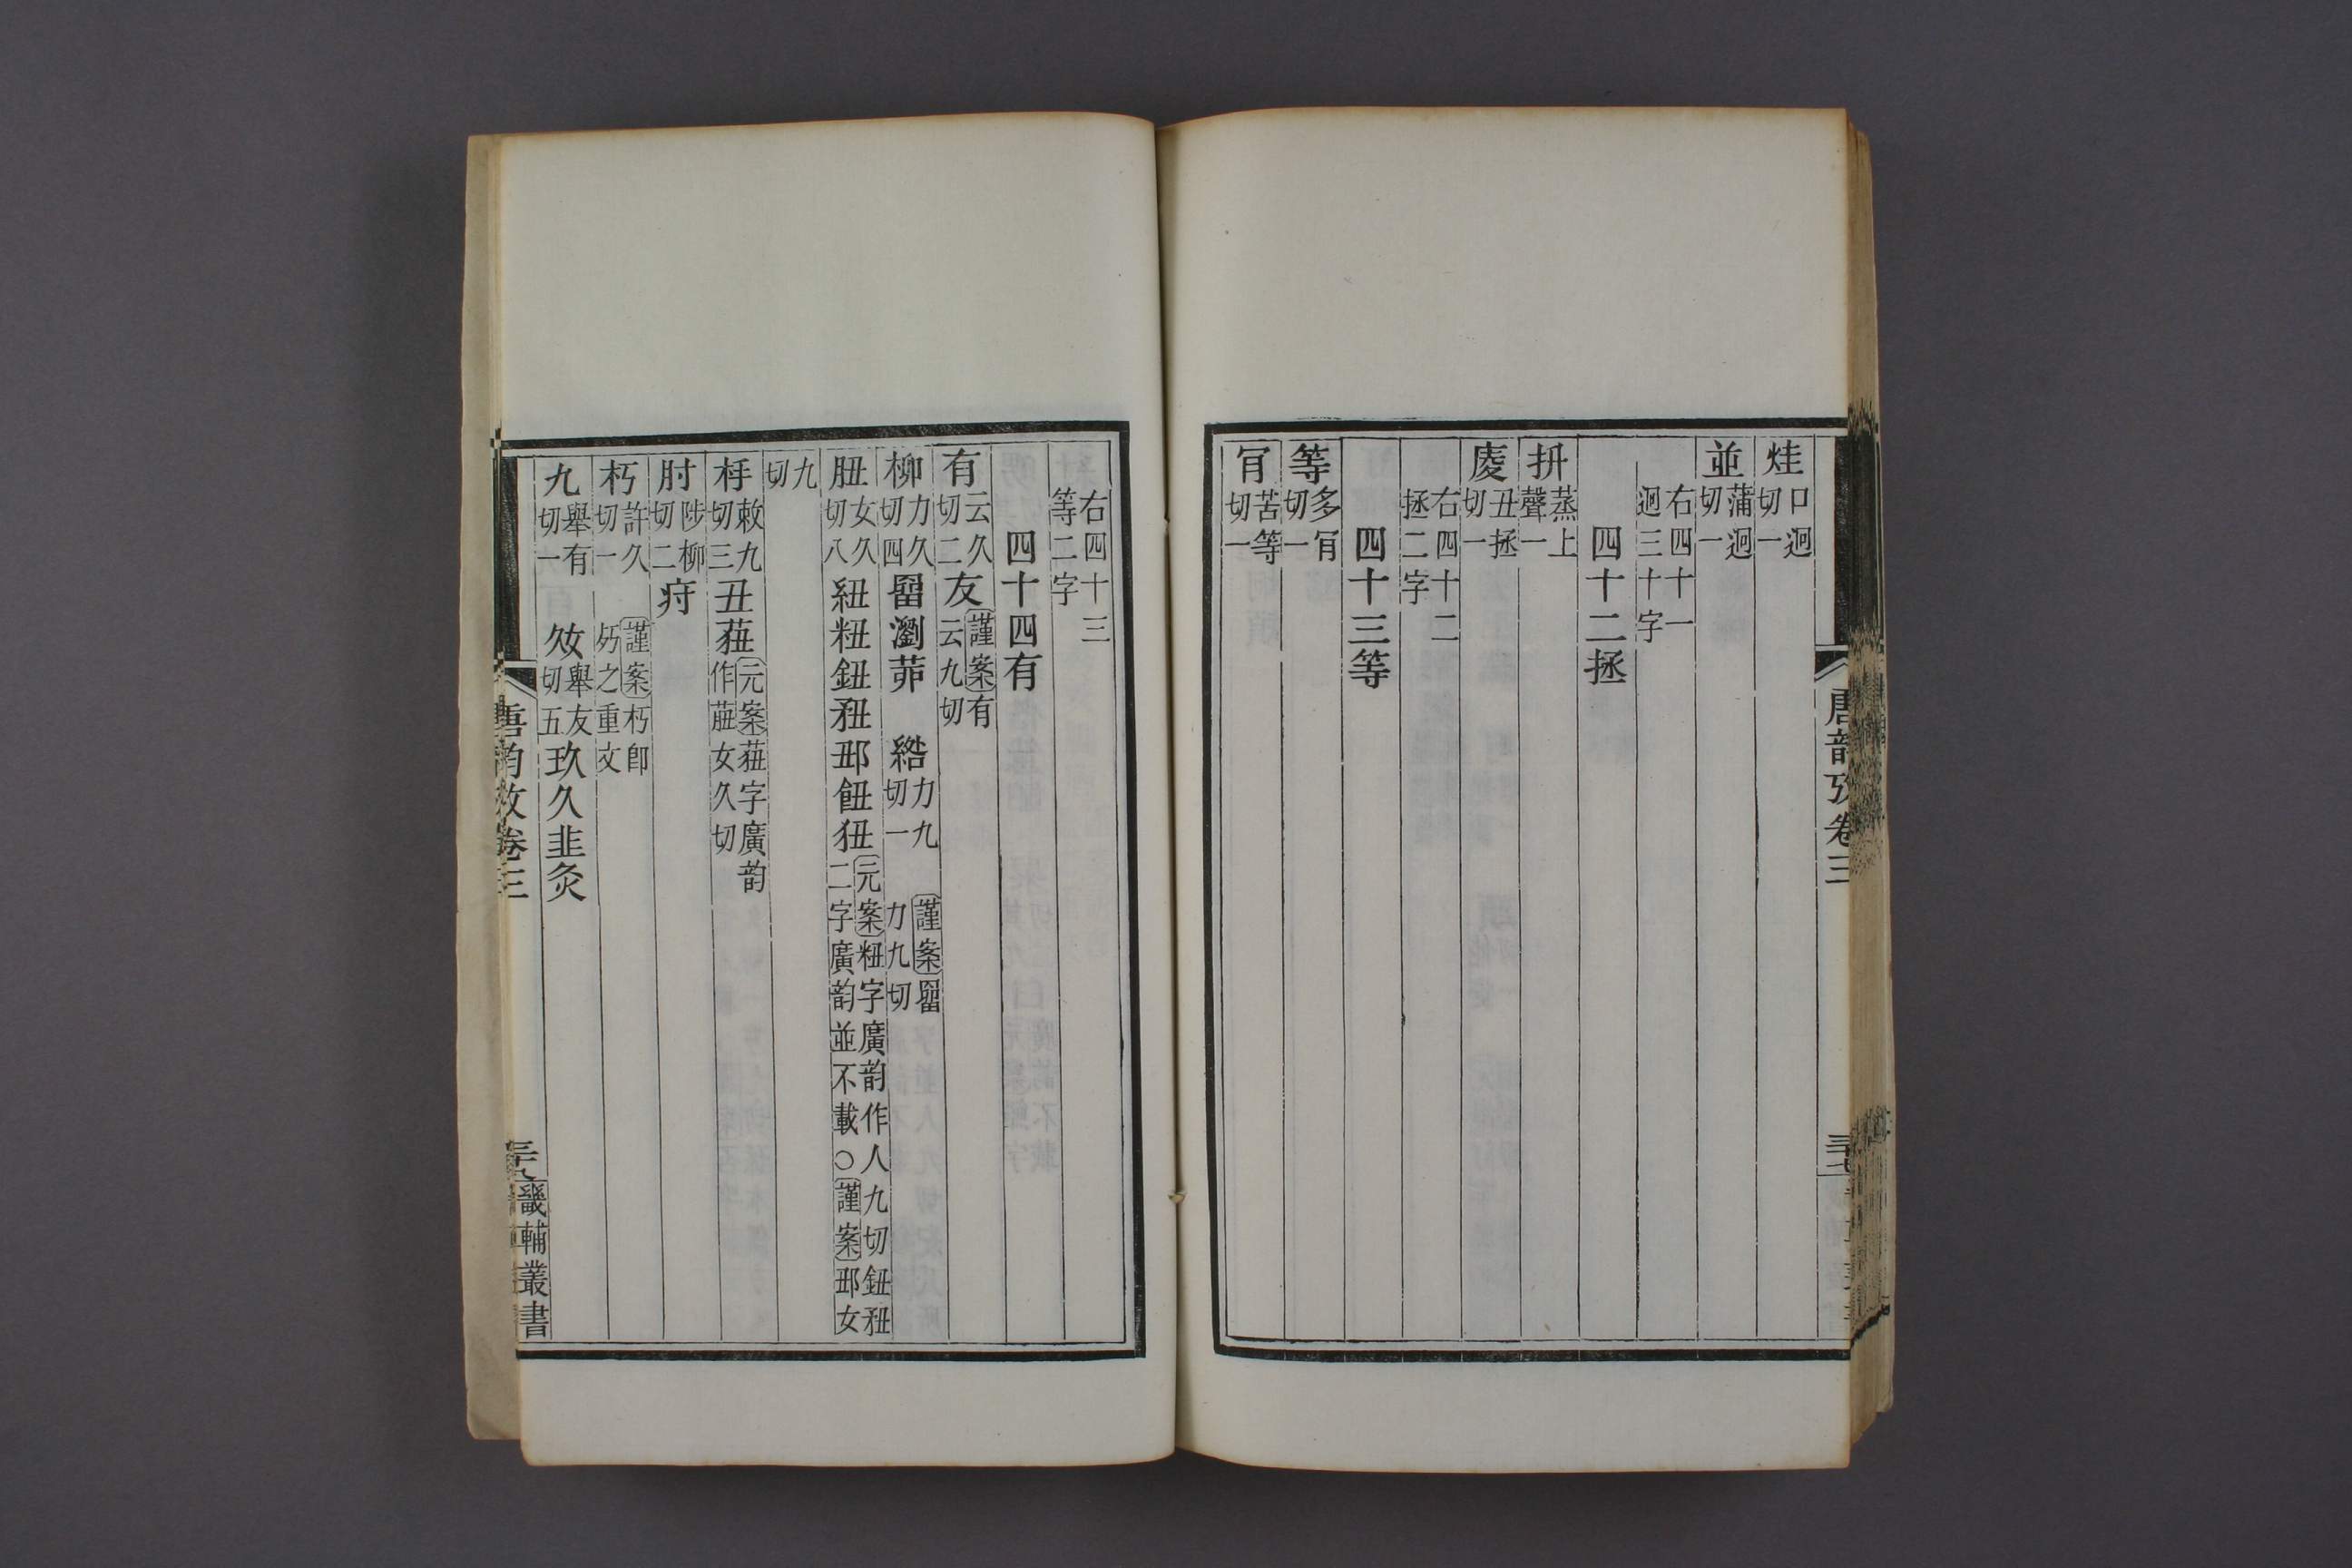 唐韵攷卷三
三十七
烓口迥切一
並蒲迥切一
右四十一迥三十字
四十二拯
抍蒸上聲一
庱丑拯切一
右四十二拯二字
四十三等
等多肎切一
肎苦等切一
右四十三等二字
四十四有
有云久切二友謹案有云九切
柳力久切四罶瀏茆 綹力九切一 謹案罶力九切
肚女久切八紐粈鈕狃邷飿狃元案粈字廣韵作人九切鈕狃二字廣韵並不載○謹案邷女
九切
杽敕九切三丑莥元案莥字廣韵作莥女久切
肘陟柳切二疛
朽許久切一 謹案朽卽㱙之重文
九舉有切一 奺舉友切五玖久韭灸
唐韵攷卷三
三十八
畿輔叢書